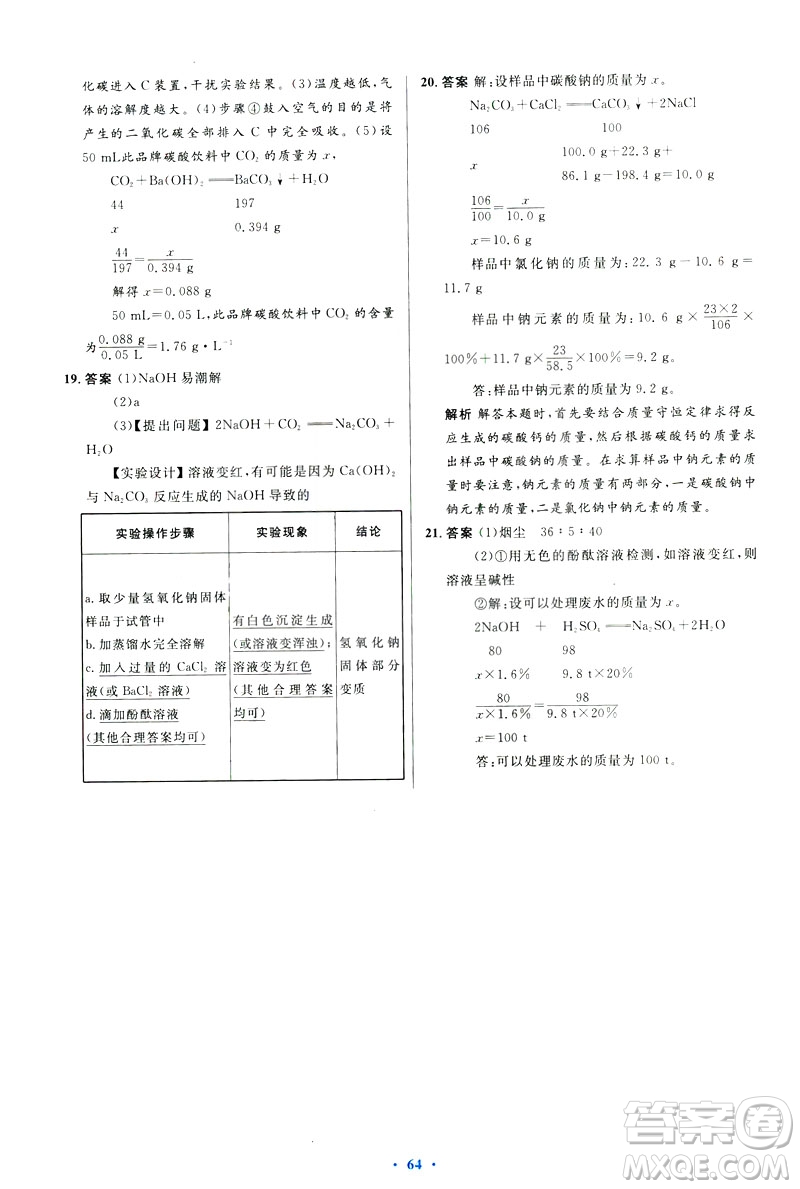 化碳进入 C 装置,干扰实验结果。(3)温度越低,气
体的溶解度越大。(4)步骤④鼓入空气的目的是将
产生的二氧化碳全部排入 C 中完全吸收。(5)设
50 mL此品牌碳酸饮料中 CO₂ 的质量为 x,
CO₂+Ba(OH)₂══BaCO₃↓+H₂O
44 197
x 0.394 g
44/197=x/0.394 g
解得 x=0.088 g
50 mL=0.05 L,此品牌碳酸饮料 CO₂ 的含量
为0.088 g/0.05 L=1.76 g·L⁻¹
19. 答案 (1)NaOH 易潮解
(2)a
(3)【提出问题】2NaOH+CO₂══Na₂CO₃+
H₂O
【实验设计】溶液变红,有可能是因为 Ca(OH)₂
与 Na₂CO₃ 反应生成的 NaOH 导致的
实验操作步骤 实验现象 结论
a. 取少量氢氧化钠固体
样品于试管中
b. 加蒸馏水完全溶解
c. 加入过量的 CaCl₂ 溶
液(或 BaCl₂ 溶液)
d. 滴加酚酞溶液
(其他合理答案均可)
有白色沉淀生成
(或溶液变浑浊);
溶液变为红色
(其他合理答案
均可)
氢氧化钠
固体部分
变质
20. 答案 解:设样品中碳酸钠的质量为 x。
Na₂CO₃+CaCl₂══CaCO₃↓+2NaCl
106 100
x 100.0 g+22.3 g+
86.1 g-198.4 g=10.0 g
106/100=x/10.0 g
x=10.6 g
样品中氯化钠的质量为:22.3 g-10.6 g=
11.7 g
样品中钠元素的质量为:10.6 g×23×2/106×
100%+11.7 g×23/58.5×100%=9.2 g
答:样品中钠元素的质量为 9.2 g。
解析 解答本题时,首先要结合质量守恒定律求得反
应生成的碳酸钙的质量,然后根据碳酸钙的质量求
出样品中碳酸钠的质量。在求算样品中钠元素的质
量时要注意,钠元素的质量有两部分,一是碳酸钠中
钠元素的质量,二是氯化钠中钠元素的质量。
21. 答案 (1)烟尘 36∶5∶40
(2)①用无色的酚酞溶液检测,如溶液变红,则
溶液呈碱性
②解:设可以处理废水的质量为 x。
2NaOH + H₂SO₄══Na₂SO₄+2H₂O
80 98
x×1.6% 9.8 t×20%
80/x×1.6%=98/9.8 t×20%
x=100 t
答:可以处理废水的质量为 100 t。
答案圈
MXQE.COM
· 64 ·